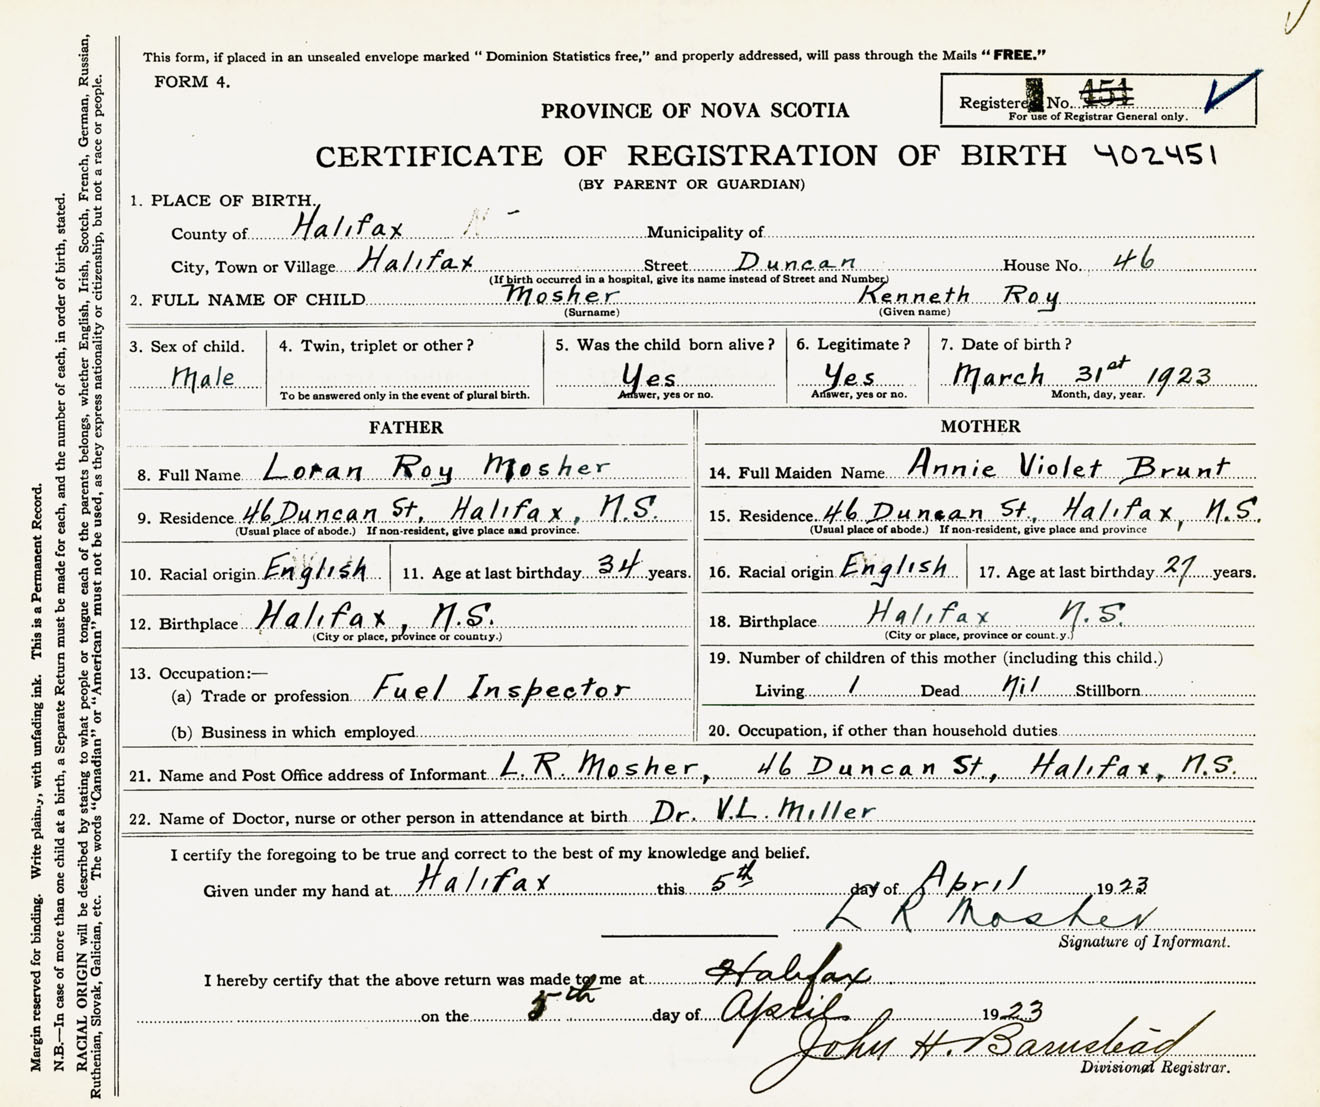 This form, if placed in an unsealed envelope marked " Dominion Statistics free," and properly addressed, will pass through the Mails "FREE."
FORM 4.
Registered No. 451
For use of Registrar General only.
PROVINCE OF NOVA SCOTIA
CERTIFICATE OF REGISTRATION OF BIRTH 402451
(BY PARENT OR GUARDIAN)
1. PLACE OF BIRTH.
County of Halifax Municipality of
City, Town or Village Halifax Street Duncan House No. 46
(If birth occurred in a hospital, give its name instead of Street and Number)
2. FULL NAME OF CHILD Mosher Kenneth Roy
(Surname) (Given name)
3. Sex of child. 4. Twin, triplet or other? 5. Was the child born alive? 6. Legitimate? 7. Date of birth?
Male Yes Yes March 31st 1923
To be answered only in the event of plural birth. Answer, yes or no. Answer, yes or no. Month, day, year.
FATHER MOTHER
8. Full Name Loran Roy Mosher 14. Full Maiden Name Annie Violet Brunt
9. Residence 46 Duncan St, Halifax, N.S. 15. Residence 46 Duncan St, Halifax, N.S.
(Usual place of abode.) If non-resident, give place and province. (Usual place of abode.) If non-resident, give place and province
10. Racial origin English 11. Age at last birthday 34 years. 16. Racial origin English 17. Age at last birthday 27 years.
12. Birthplace Halifax, N.S. 18. Birthplace Halifax N.S.
(City or place, province or country.) (City or place, province or count.y.)
13. Occupation:— 19. Number of children of this mother (including this child.)
(a) Trade or profession Fuel Inspector Living 1 Dead Nil Stillborn
(b) Business in which employed 20. Occupation, if other than household duties
21. Name and Post Office address of Informant L. R. Mosher, 46 Duncan St, Halifax, N.S.
22. Name of Doctor, nurse or other person in attendance at birth Dr. V.L. Miller
I certify the foregoing to be true and correct to the best of my knowledge and belief.
Given under my hand at Halifax this 5th day of April 1923
L R Mosher
Signature of Informant.
I hereby certify that the above return was made to me at Halifax
on the 5th day of April 1923
John H. Barnstead
Divisional Registrar.
Margin reserved for binding. Write plainly, with unfading ink. This is a Permanent Record.
N.B.—In case of more than one child at a birth, a Separate Return must be made for each, and the number of each, in order of birth, stated.
RACIAL ORIGIN will be described by stating to what people or tongue each of the parents belongs, whether English, Irish, Scotch, French, German, Russian,
Ruthenian, Slovak, Galician, etc. The words "Canadian" or "American" must not be used, as they express nationality or citizenship, but not a race or people.